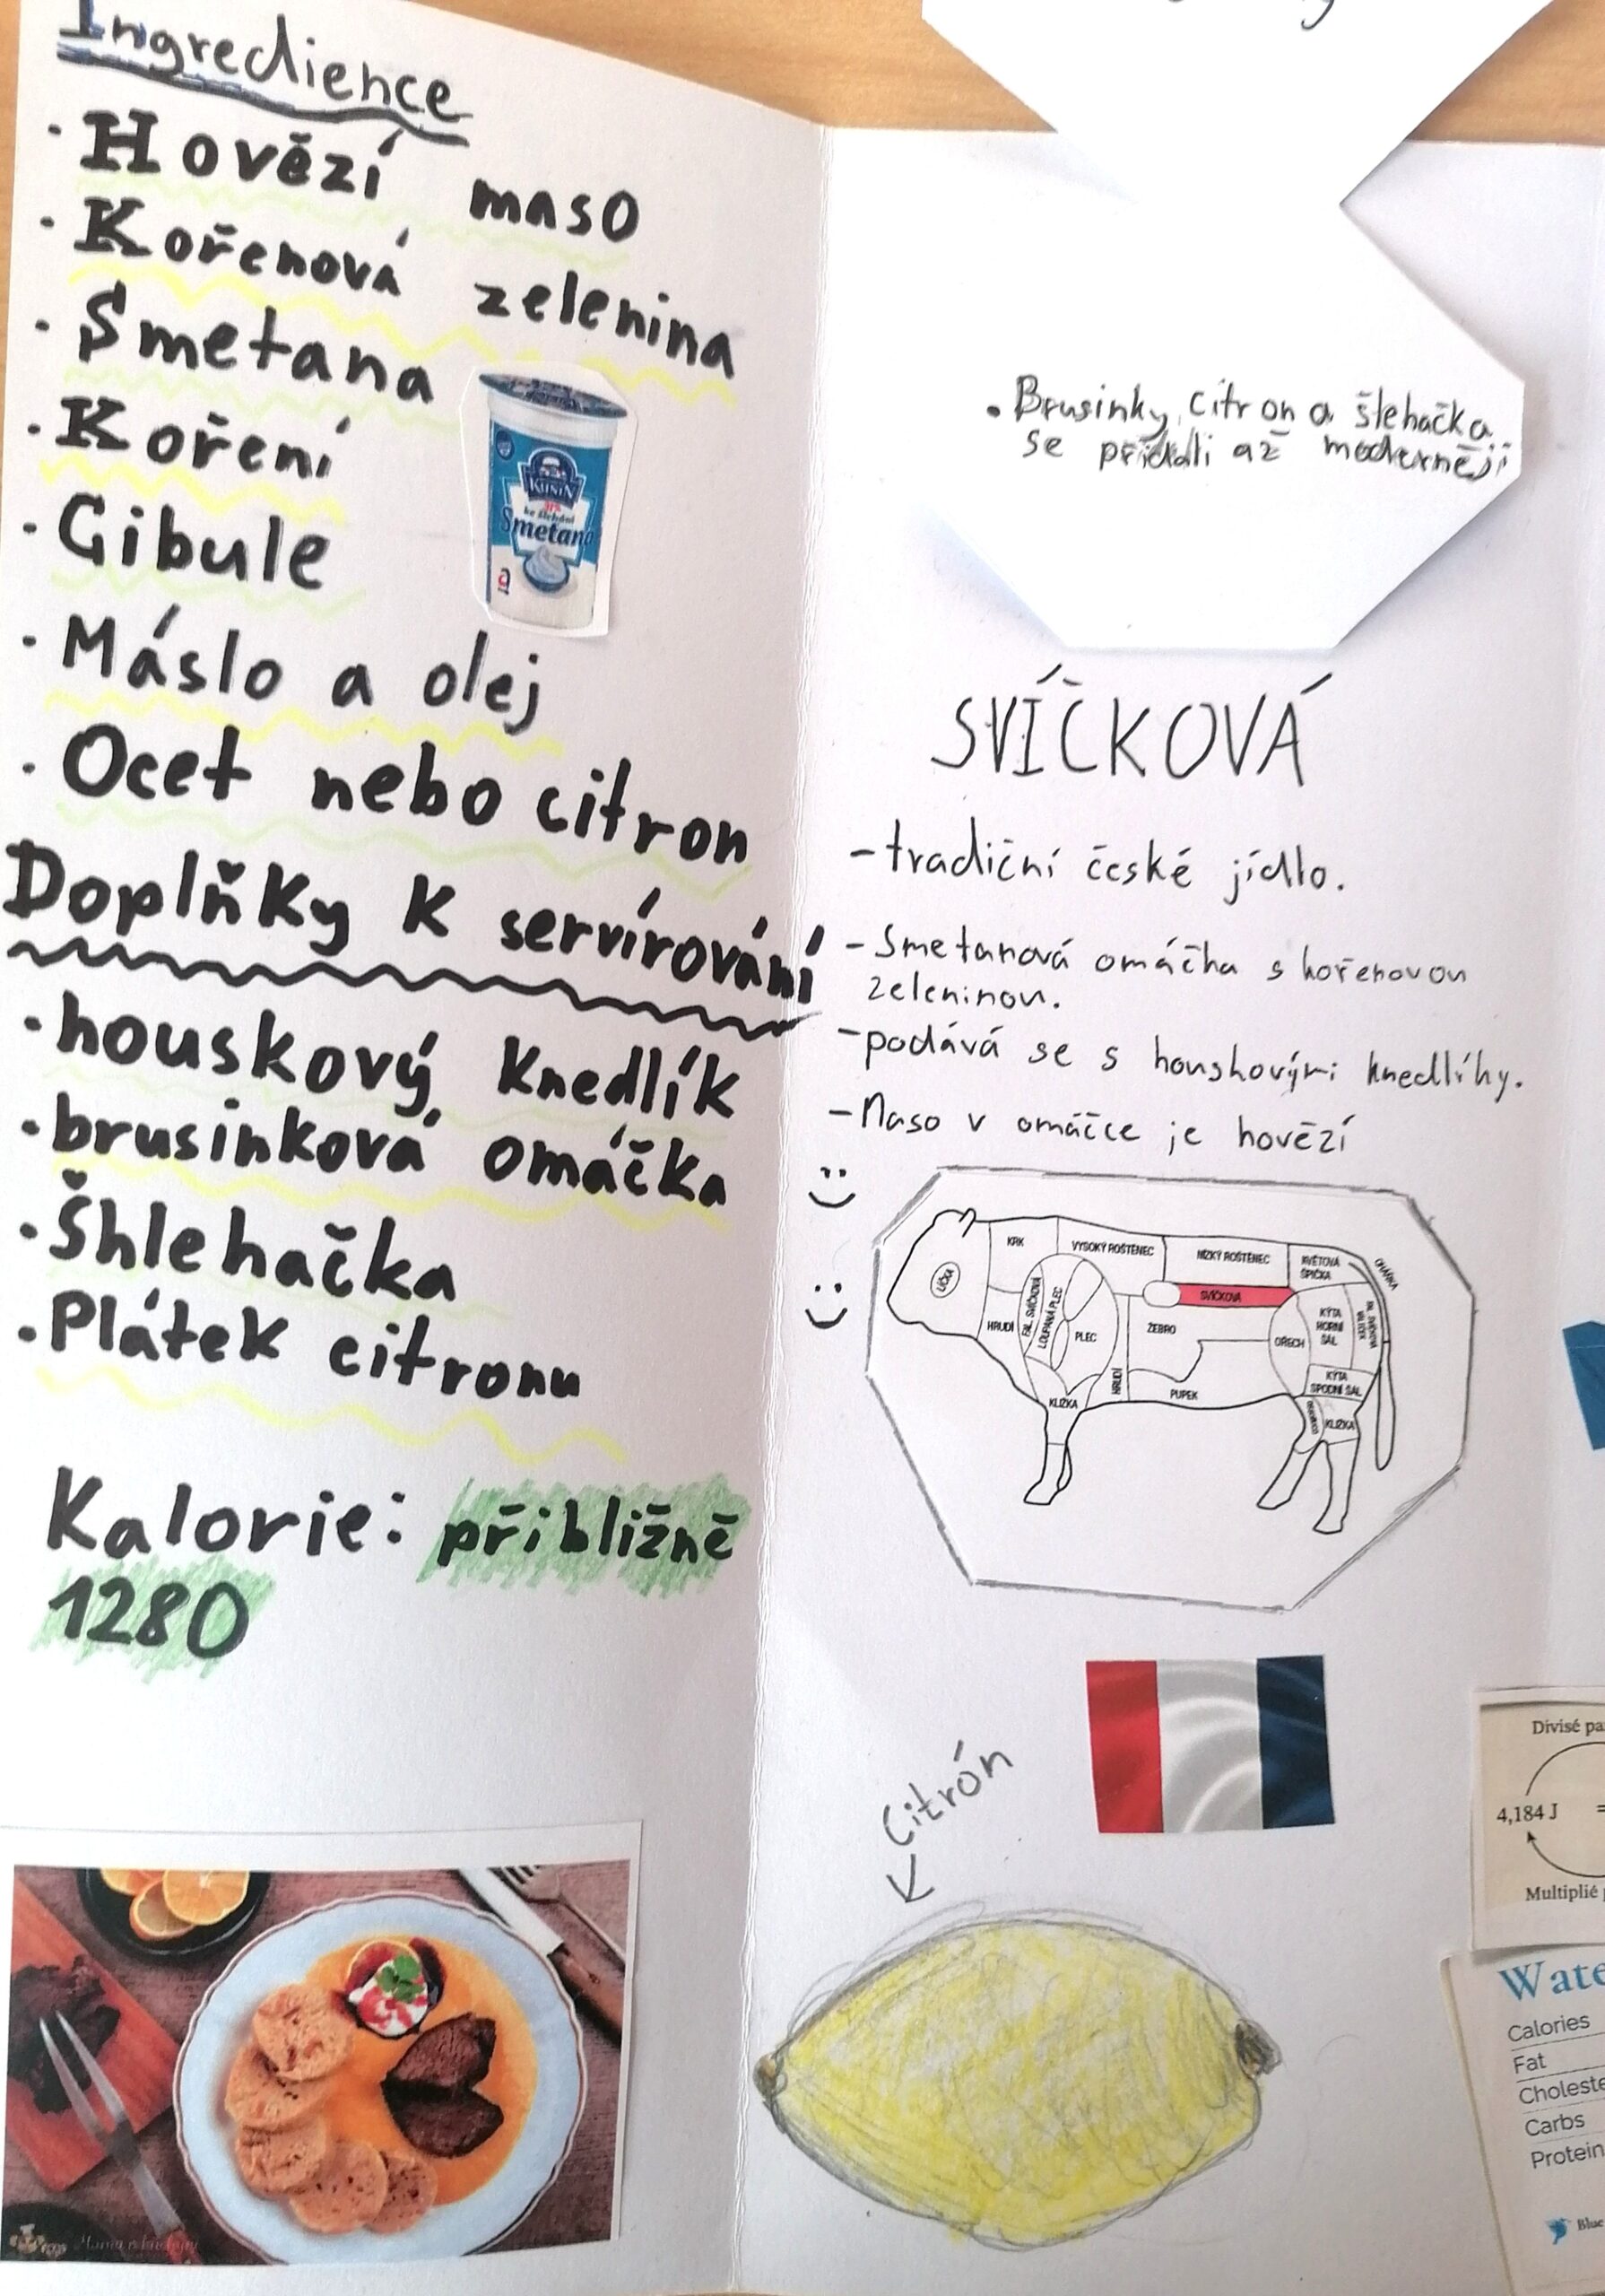 Ingredience
· Hovězí maso
· Kořenová zelenina
· Smetana
· Koření
· Cibule
· Máslo a olej
· Ocet nebo citron
Doplňky k servírování
· houskový knedlík
· brusinková omáčka
· Šhlehačka
· Plátek citronu
Kalorie: přibližně
1280
KUNÍN
31%
ke šlehání
Smetana
· Brusinky, citron a šlehačka
se přidali až moderněji
SVÍČKOVÁ
- tradiční české jídlo.
- Smetanová omáčka s kořenovou
zeleninou.
- podává se s houskovými knedlíky.
- Maso v omáčce je hovězí
LÍČKA
KRK
VYSOKÝ ROŠTĚNEC
NÍZKÝ ROŠTĚNEC
KVĚTOVÁ
ŠPIČKA
OHÁŇKA
SVÍČKOVÁ
HRUDÍ
FAL. SVÍČKOVÁ
LOUPANÁ PLEC
PLEC
ŽEBRO
OŘECH
KÝTA
HORNÍ
ŠÁL
HRUDÍ
PUPEK
KÝTA
SPODNÍ ŠÁL
KLIŽKA
KLIŽKA
Citrón
Divisé pa
4,184 J =
Multiplié
Wate
Calories
Fat
Choleste
Carbs
Protein
Blue